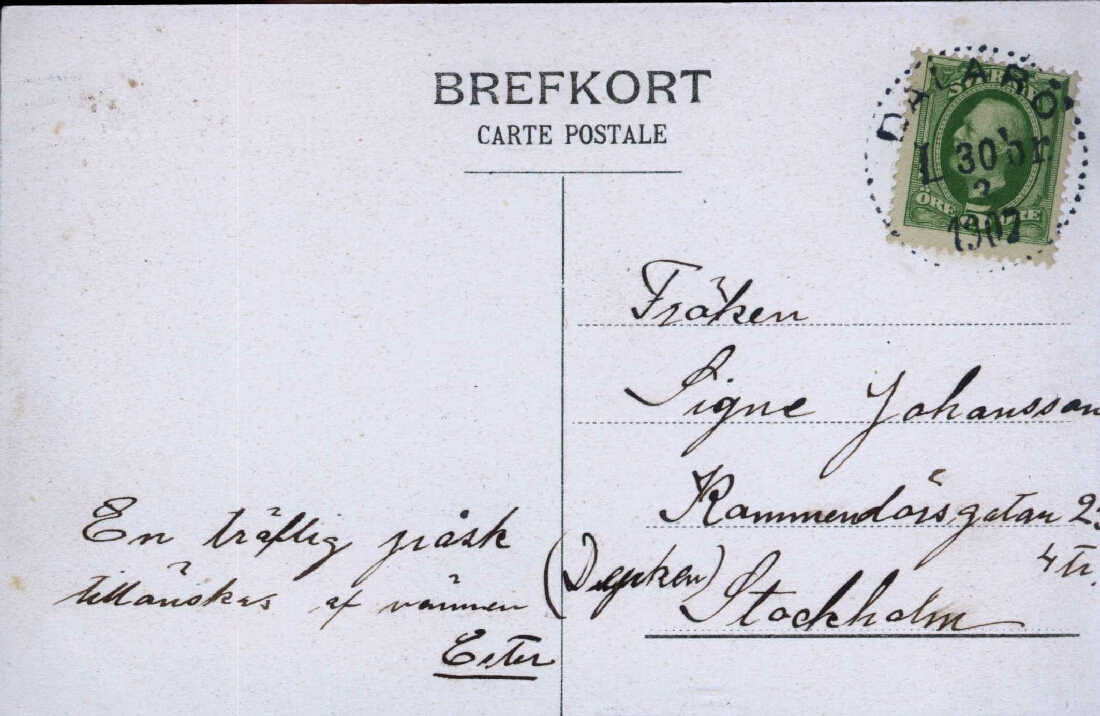 BREFKORT
CARTE POSTALE
DALARÖ
30
3
1907
SVERIGE
ÖRE
ÖRE
Fröken
Signe Johansson
Kommendörsgatan 2
4 tr.
Stockholm
En träflig påsk
tillönskas af vännen
Ester